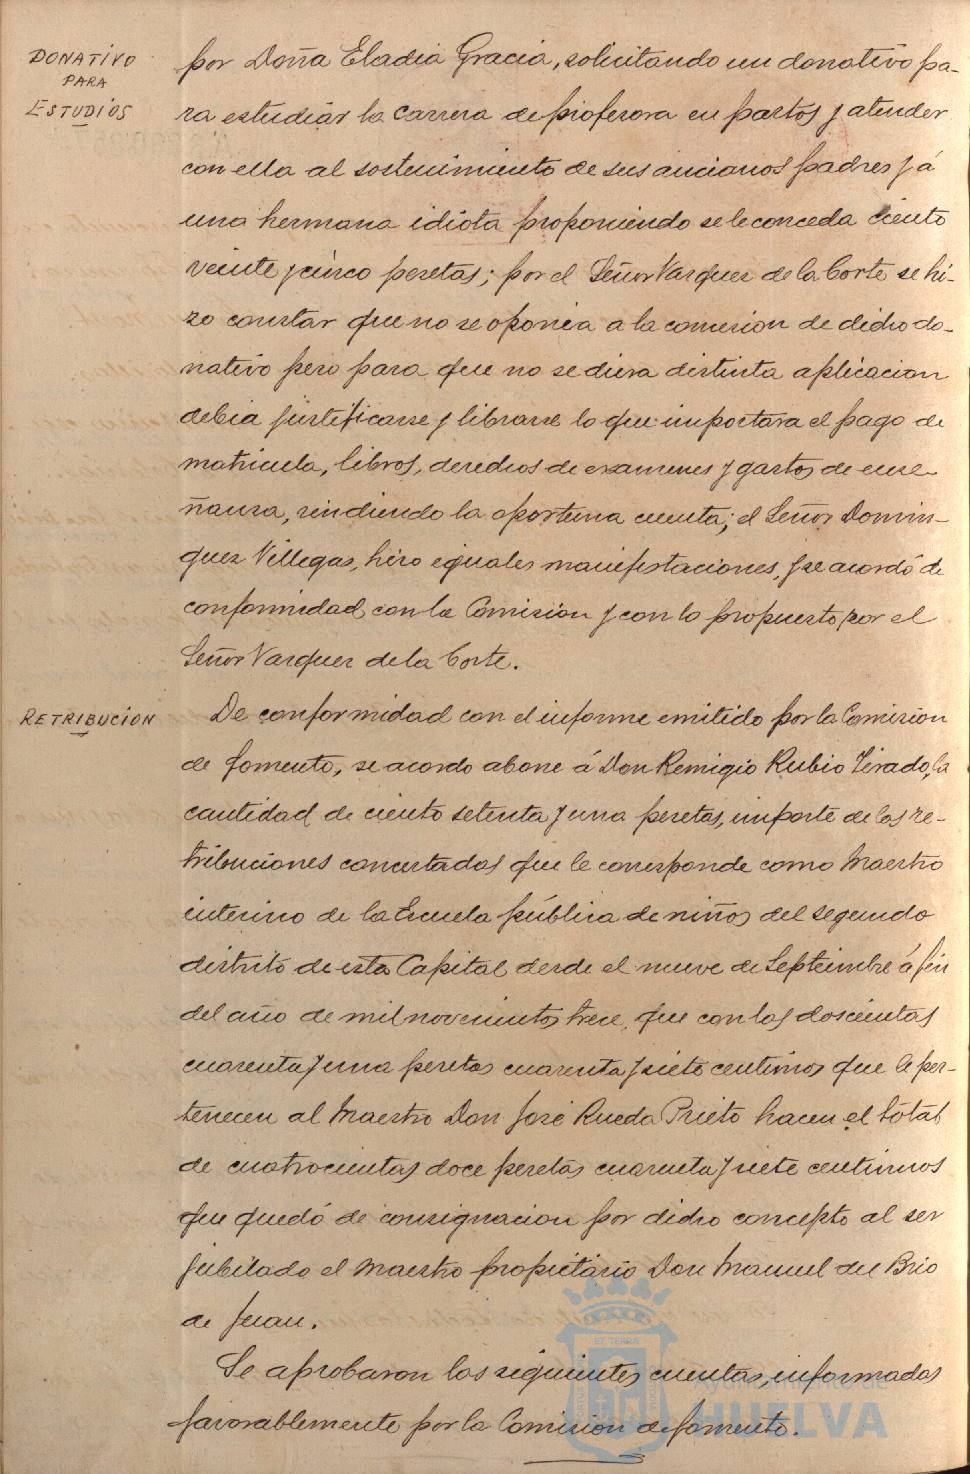 DONATIVO
PARA
ESTUDIOS
por Doña Eladia Gracia, solicitando un donativo pa-
ra estudiar la carrera de profesora en partos y atender
con ella al sostenimiento de sus ancianos padres y á
una hermana idiota proponiendo se le conceda ciento
veinte y cinco pesetas; por el Señor Vazquez de la Corte se hi-
zo constar que no se oponia a la concesion de dicho do-
nativo pero para que no se diera distinta aplicacion
debia justificarse y librarse lo que importara el pago de
matricula, libros, derechos de examenes y gastos de ense-
ñanza, rindiendo la oportuna cuenta; el Señor Domin-
guez Villegas, hizo iguales manifestaciones, y se acordó de
conformidad con la Comision y con lo propuesto por el
Señor Vazquez de la Corte.
RETRIBUCION
De conformidad con el informe emitido por la Comision
de fomento, se acordo abone á Don Remigio Rubio Tirado, la
cantidad de ciento setenta y una pesetas, importe de las re-
tribuciones concertadas que le corresponde como Maestro
interino de la Escuela pública de niños del segundo
distrito de esta Capital desde el nueve de Septiembre á fin
del año de mil novecientos trece, que con las doscientas
cuarenta y una pesetas cuarenta y siete centimos que le per-
tenecen al Maestro Don José Rueda Prieto hacen el total
de cuatrocientas doce pesetas cuarenta y siete centimos
que quedó de consignacion por dicho concepto al ser
jubilado el Maestro propietario Don Manuel del Brio
de Juan.
Se aprobaron las siguientes cuentas, informadas
favorablemente por la Comision de fomento.
Ayuntamiento de
HUELVA